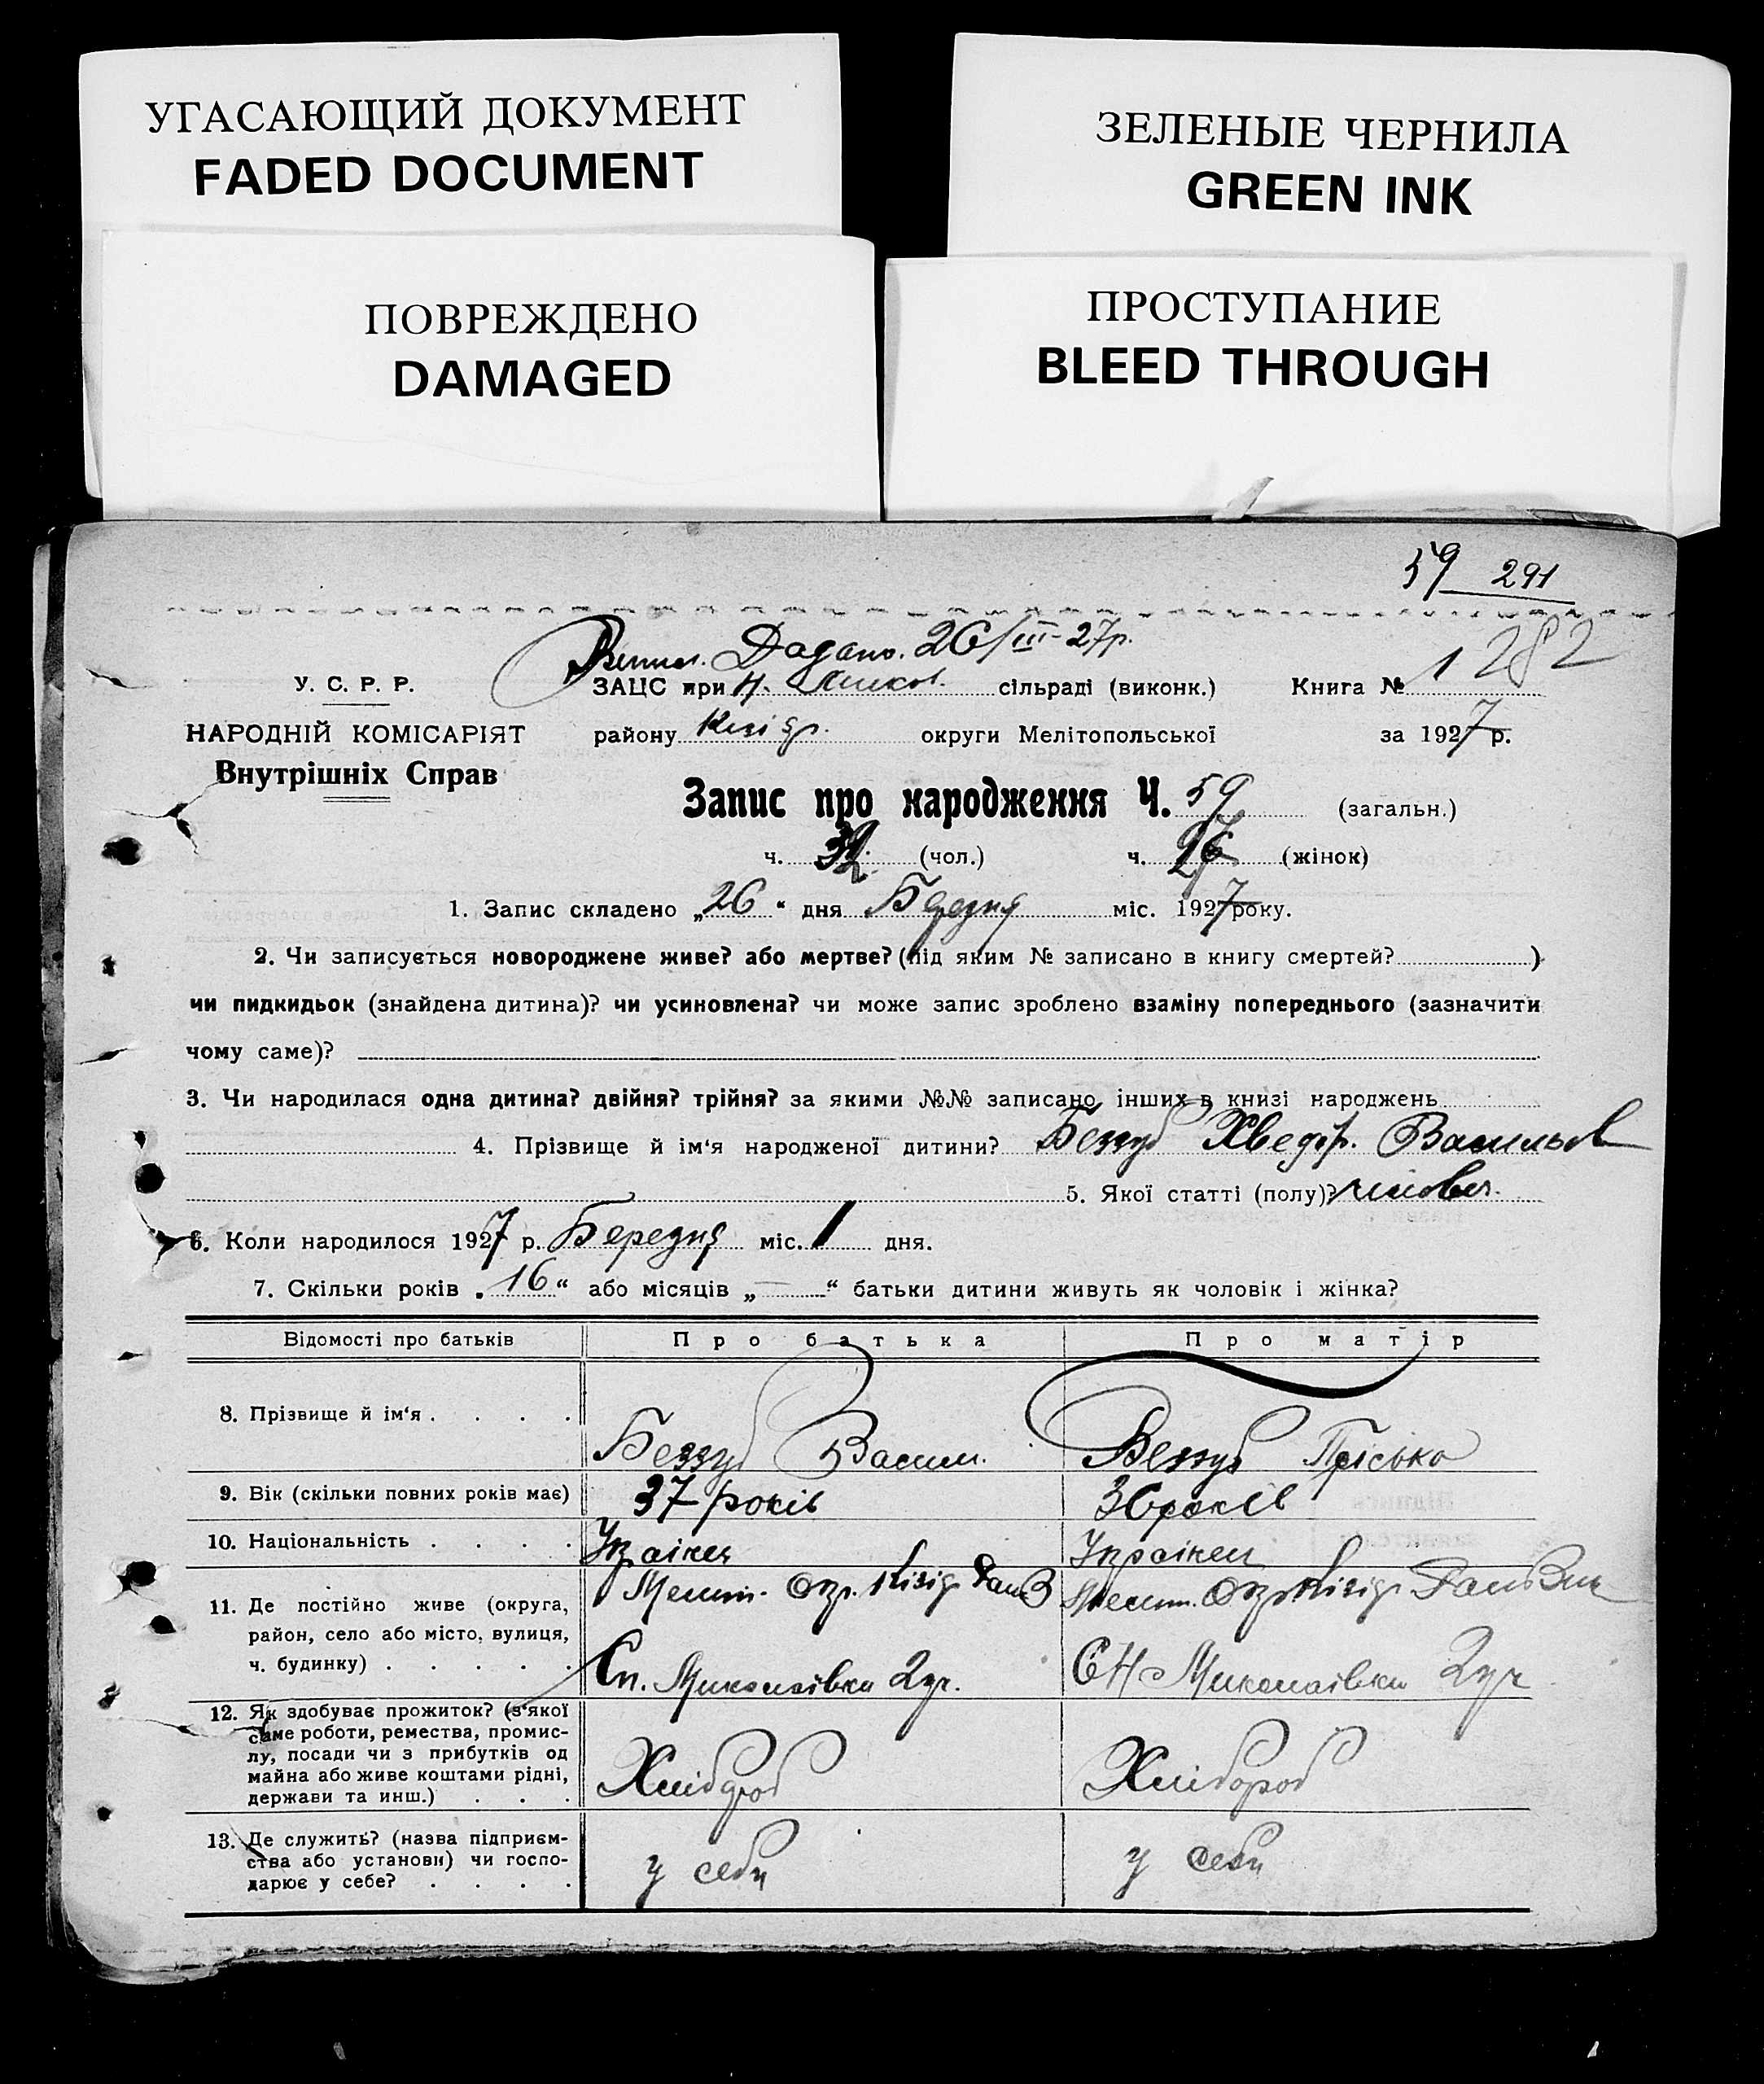 УГАСАЮЩИЙ ДОКУМЕНТ
FADED DOCUMENT
ЗЕЛЕНЫЕ ЧЕРНИЛА
GREEN INK
ПОВРЕЖДЕНО
DAMAGED
ПРОСТУПАНИЕ
BLEED THROUGH
59 291
26/III-27р.
1 282
У. С. Р. Р.
ЗАЦС при Н. сільраді (виконк.) Книга № 
НАРОДНІЙ КОМІСАРІЯТ
району округи Мелітопольської за 1927 р.
Внутрішніх Справ
Запис про народження Ч. 59 (загальн.)
ч. 32 (чол.) ч. 27 (жінок)
1. Запис складено „26“ дня Березня міс. 1927 року.
2. Чи записується новороджене живе? або мертве? (під яким № записано в книгу смертей? )
чи пидкидьок (знайдена дитина)? чи усиновлена? чи може запис зроблено взаміну попереднього (зазначити
чому саме)?
3. Чи народилася одна дитина? двійня? трійня? за якими №№ записано інших в книзі народжень
4. Прізвище й ім‘я народженої дитини? Беззуб Хведір. Васильов
5. Якої статті (полу)? чолов.
6. Коли народилося 1927 р. Березня міс. 1 дня.
7. Скільки років „16“ або місяців „—“ батьки дитини живуть як чоловік і жінка?
Відомості про батьків Про батька Про матір
8. Прізвище й ім‘я . . . . Беззуб Васил. Беззуб Пріська
9. Вік (скільки повних років має) 37 років 36 років
10. Національність . . . . Українец Українец
11. Де постійно живе (округа,
район, село або місто, вулиця,
ч. будинку) . . . . .
Мелит. Окр. Кізід.
Мелит. Окр. Кізід.
Сп. Миколаівка 2
СН Миколаівка 2
12. Як здобуває прожиток? (з‘якої
саме роботи, ремества, промис-
лу, посади чи з прибутків од
майна або живе коштами рідні,
держави та инш.) . . .
Хлібороб Хлібороб
13. Де служить? (назва підприєм-
ства або установи) чи госпо-
дарює у себе? . . . .
у себи у себи